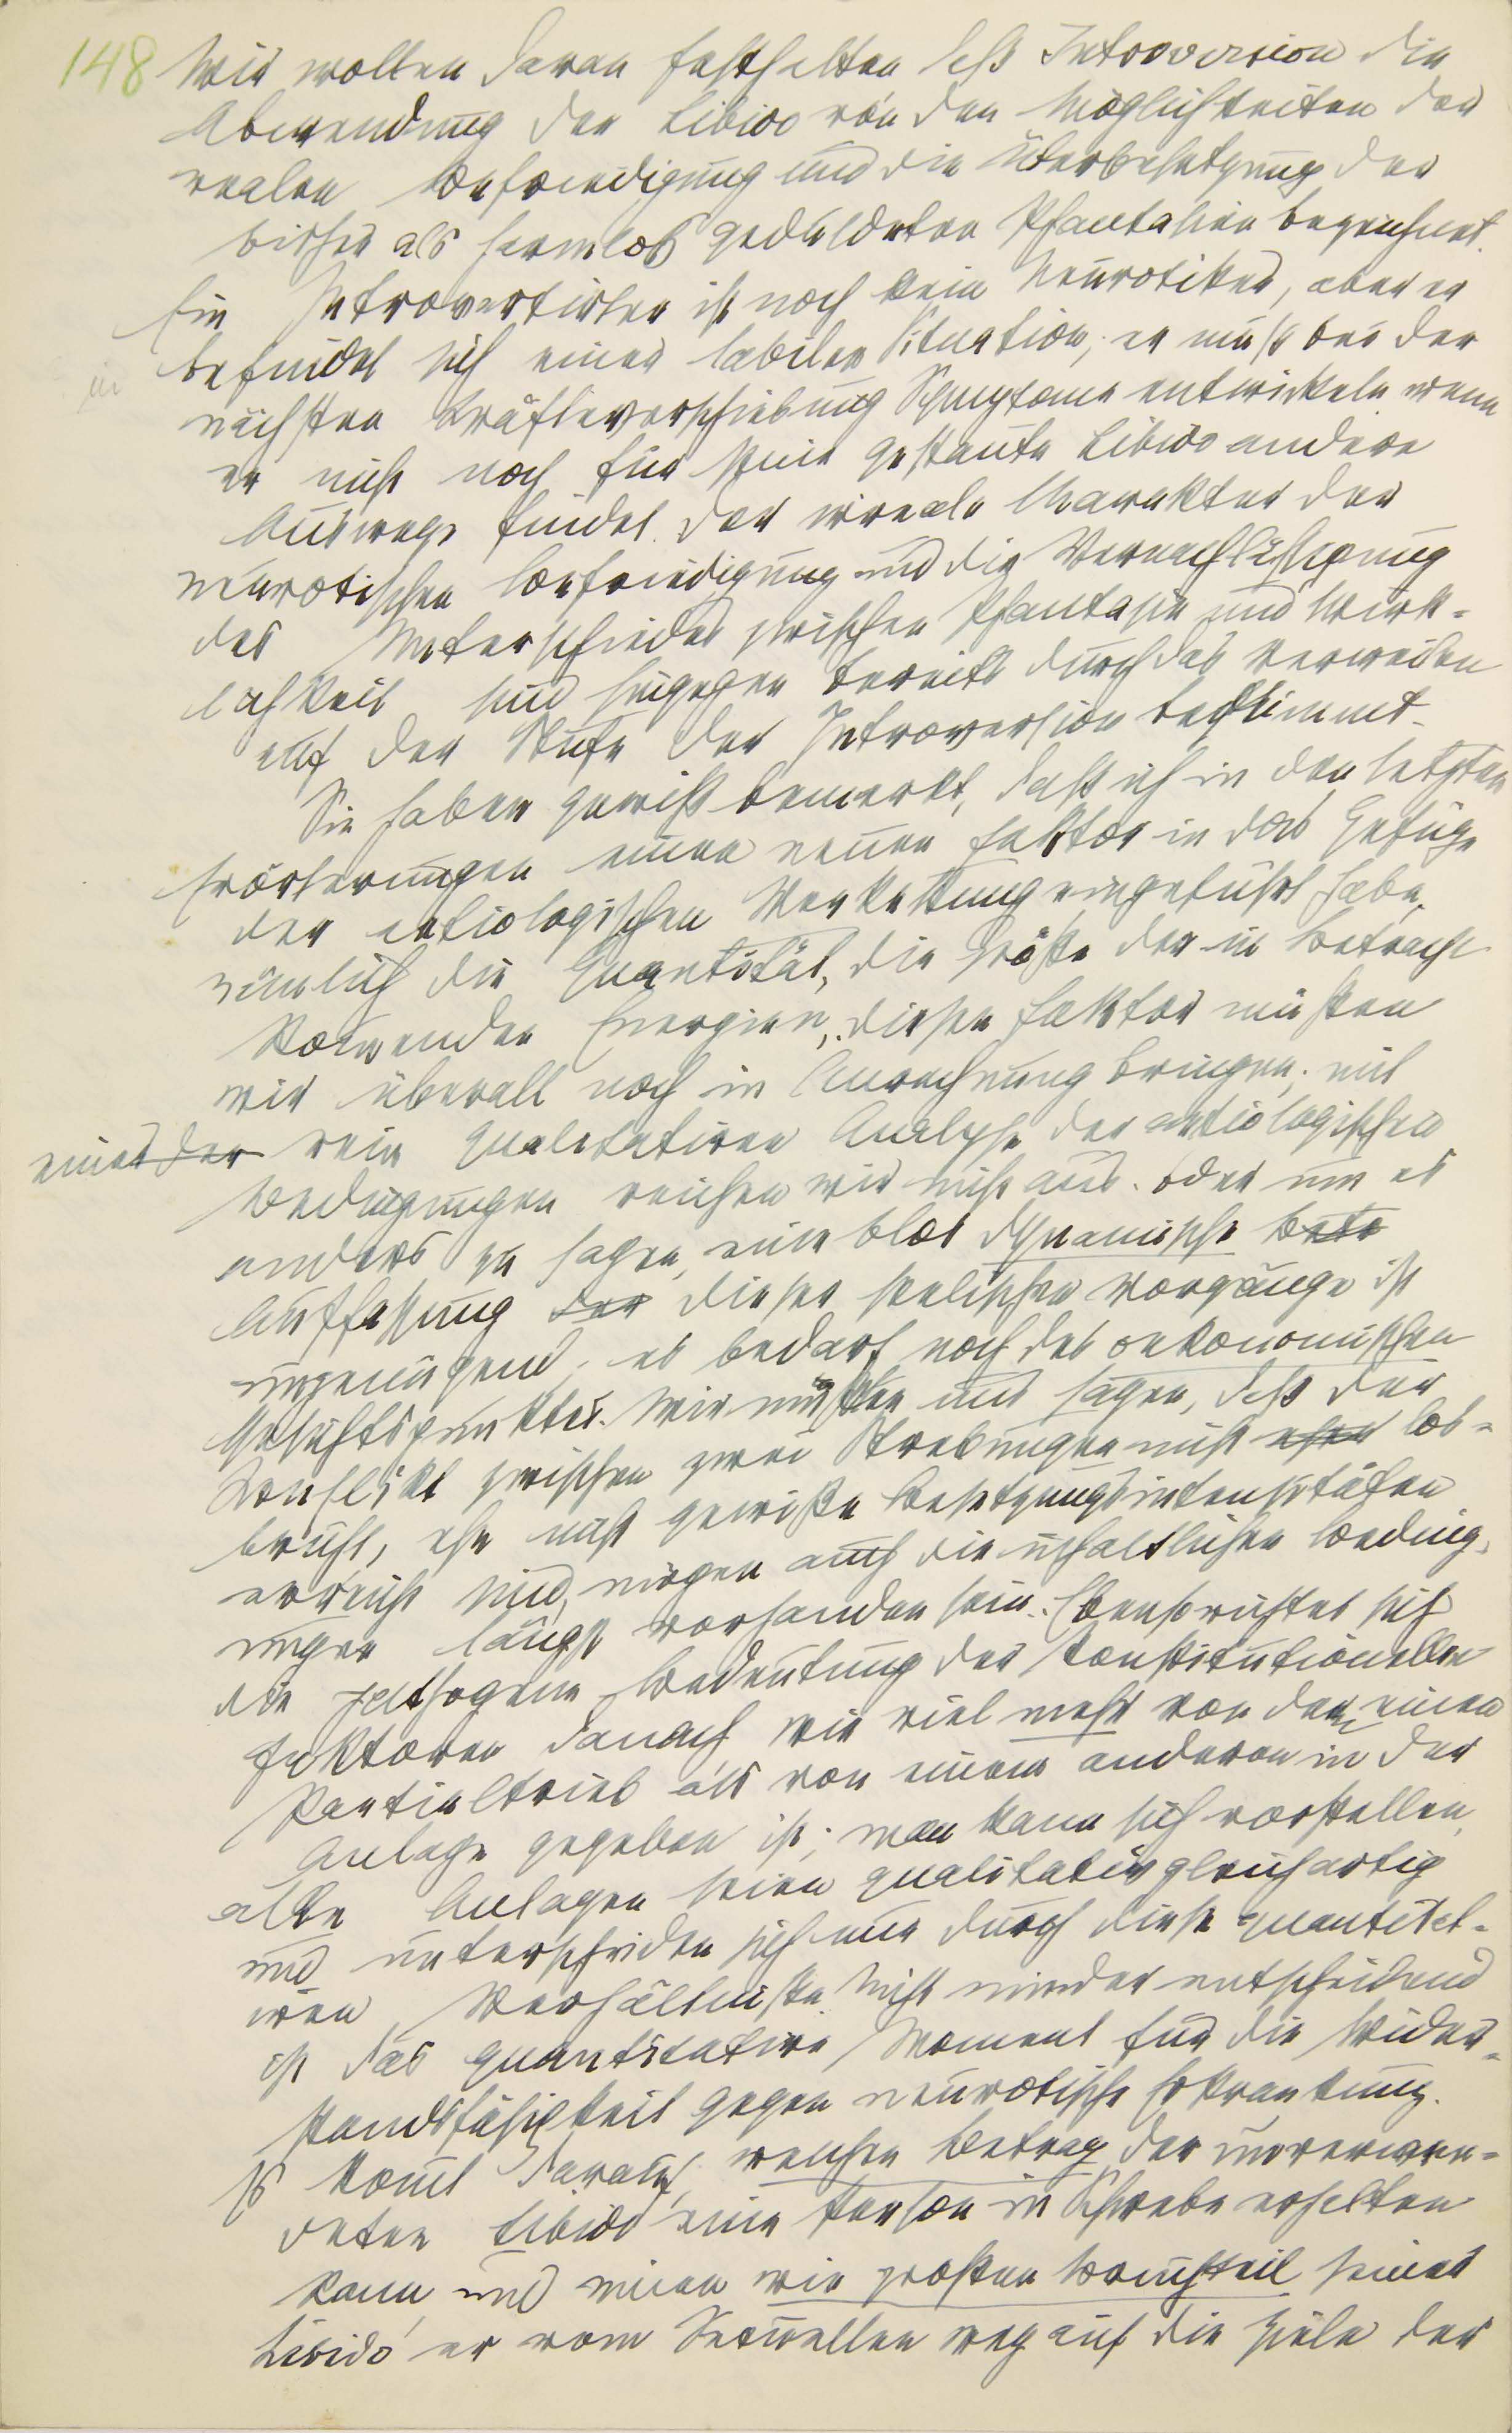 148
Wir wollen daran festhalten daß Introversion die
Abwendung der Libido von den Möglichkeiten der
realen Befriedigung und die Überbesetzung der
bisher als harmlos geduldeten Phantasien bezeichnet.
Ein Introvertirter ist noch kein Neurotiker, aber er
in
befindet sich einer labilen Situation; er muß bei der
nächsten Kräfteverschiebung Symptome entwickeln wenn
er nicht noch für seine gestaute Libido andere
Auswege findet. Der irreale Charakter der
neurotischen Befriedigung und die Vernachlässigung
des Unterschiedes zwischen Phantasie und Wirk-
lichkeit sind hingegen bereits durch das Verweilen
auf der Stufe der Introversion bestimmt.
Sie haben gewiß bemerkt, daß ich in den letzten
Erörterungen einen neuen Faktor in das Gefüge
der aetiologischen Verkettung eingeführt habe,
nämlich die Quantität, die Größe der in Betracht
kommenden Energien, diesen Faktor müssen
wir überall noch in Anrechnung bringen; mit
einer der rein qualitativen Analyse der aetiologischen
Bedingungen reichen wir nicht aus. Oder um es
anders zu sagen, eine blos dynamische Betr
Auffassung der dieser seelischen Vorgänge ist
ungenügend, es bedarf noch des oekonomischen
Gesichtspunktes. Wir müssen uns sagen, daß der
Konflikt zwischen zwei Strebungen nicht eher los-
bricht, ehe nicht gewisse Besetzungsintensitäten
erreicht sind, mögen auch die inhaltlichen Beding-
ungen längst vorhanden sein. Ebenso richtet sich
die pathogene Bedeutung der konstitutionellen
Faktoren danach wie viel mehr von dem einen
Partialtrieb als von einem anderen in der
Anlage gegeben ist; man kann sich vorstellen,
alle Anlagen seien qualitativ gleichartig
und unterscheiden sich nur durch diese quantitat-
iven Verhältnisse. Nicht minder entscheidend
ist das quantitative Moment für die Wider-
standsfähigkeit gegen neurotische Erkrankung.
Es komt darauf, welchen Betrag der unverwen-
deten Libido eine Person in Schwebe erhalten
kann und einen wie großen Bruchteil seiner
Libido er vom Sexuellen weg auf die Ziele der